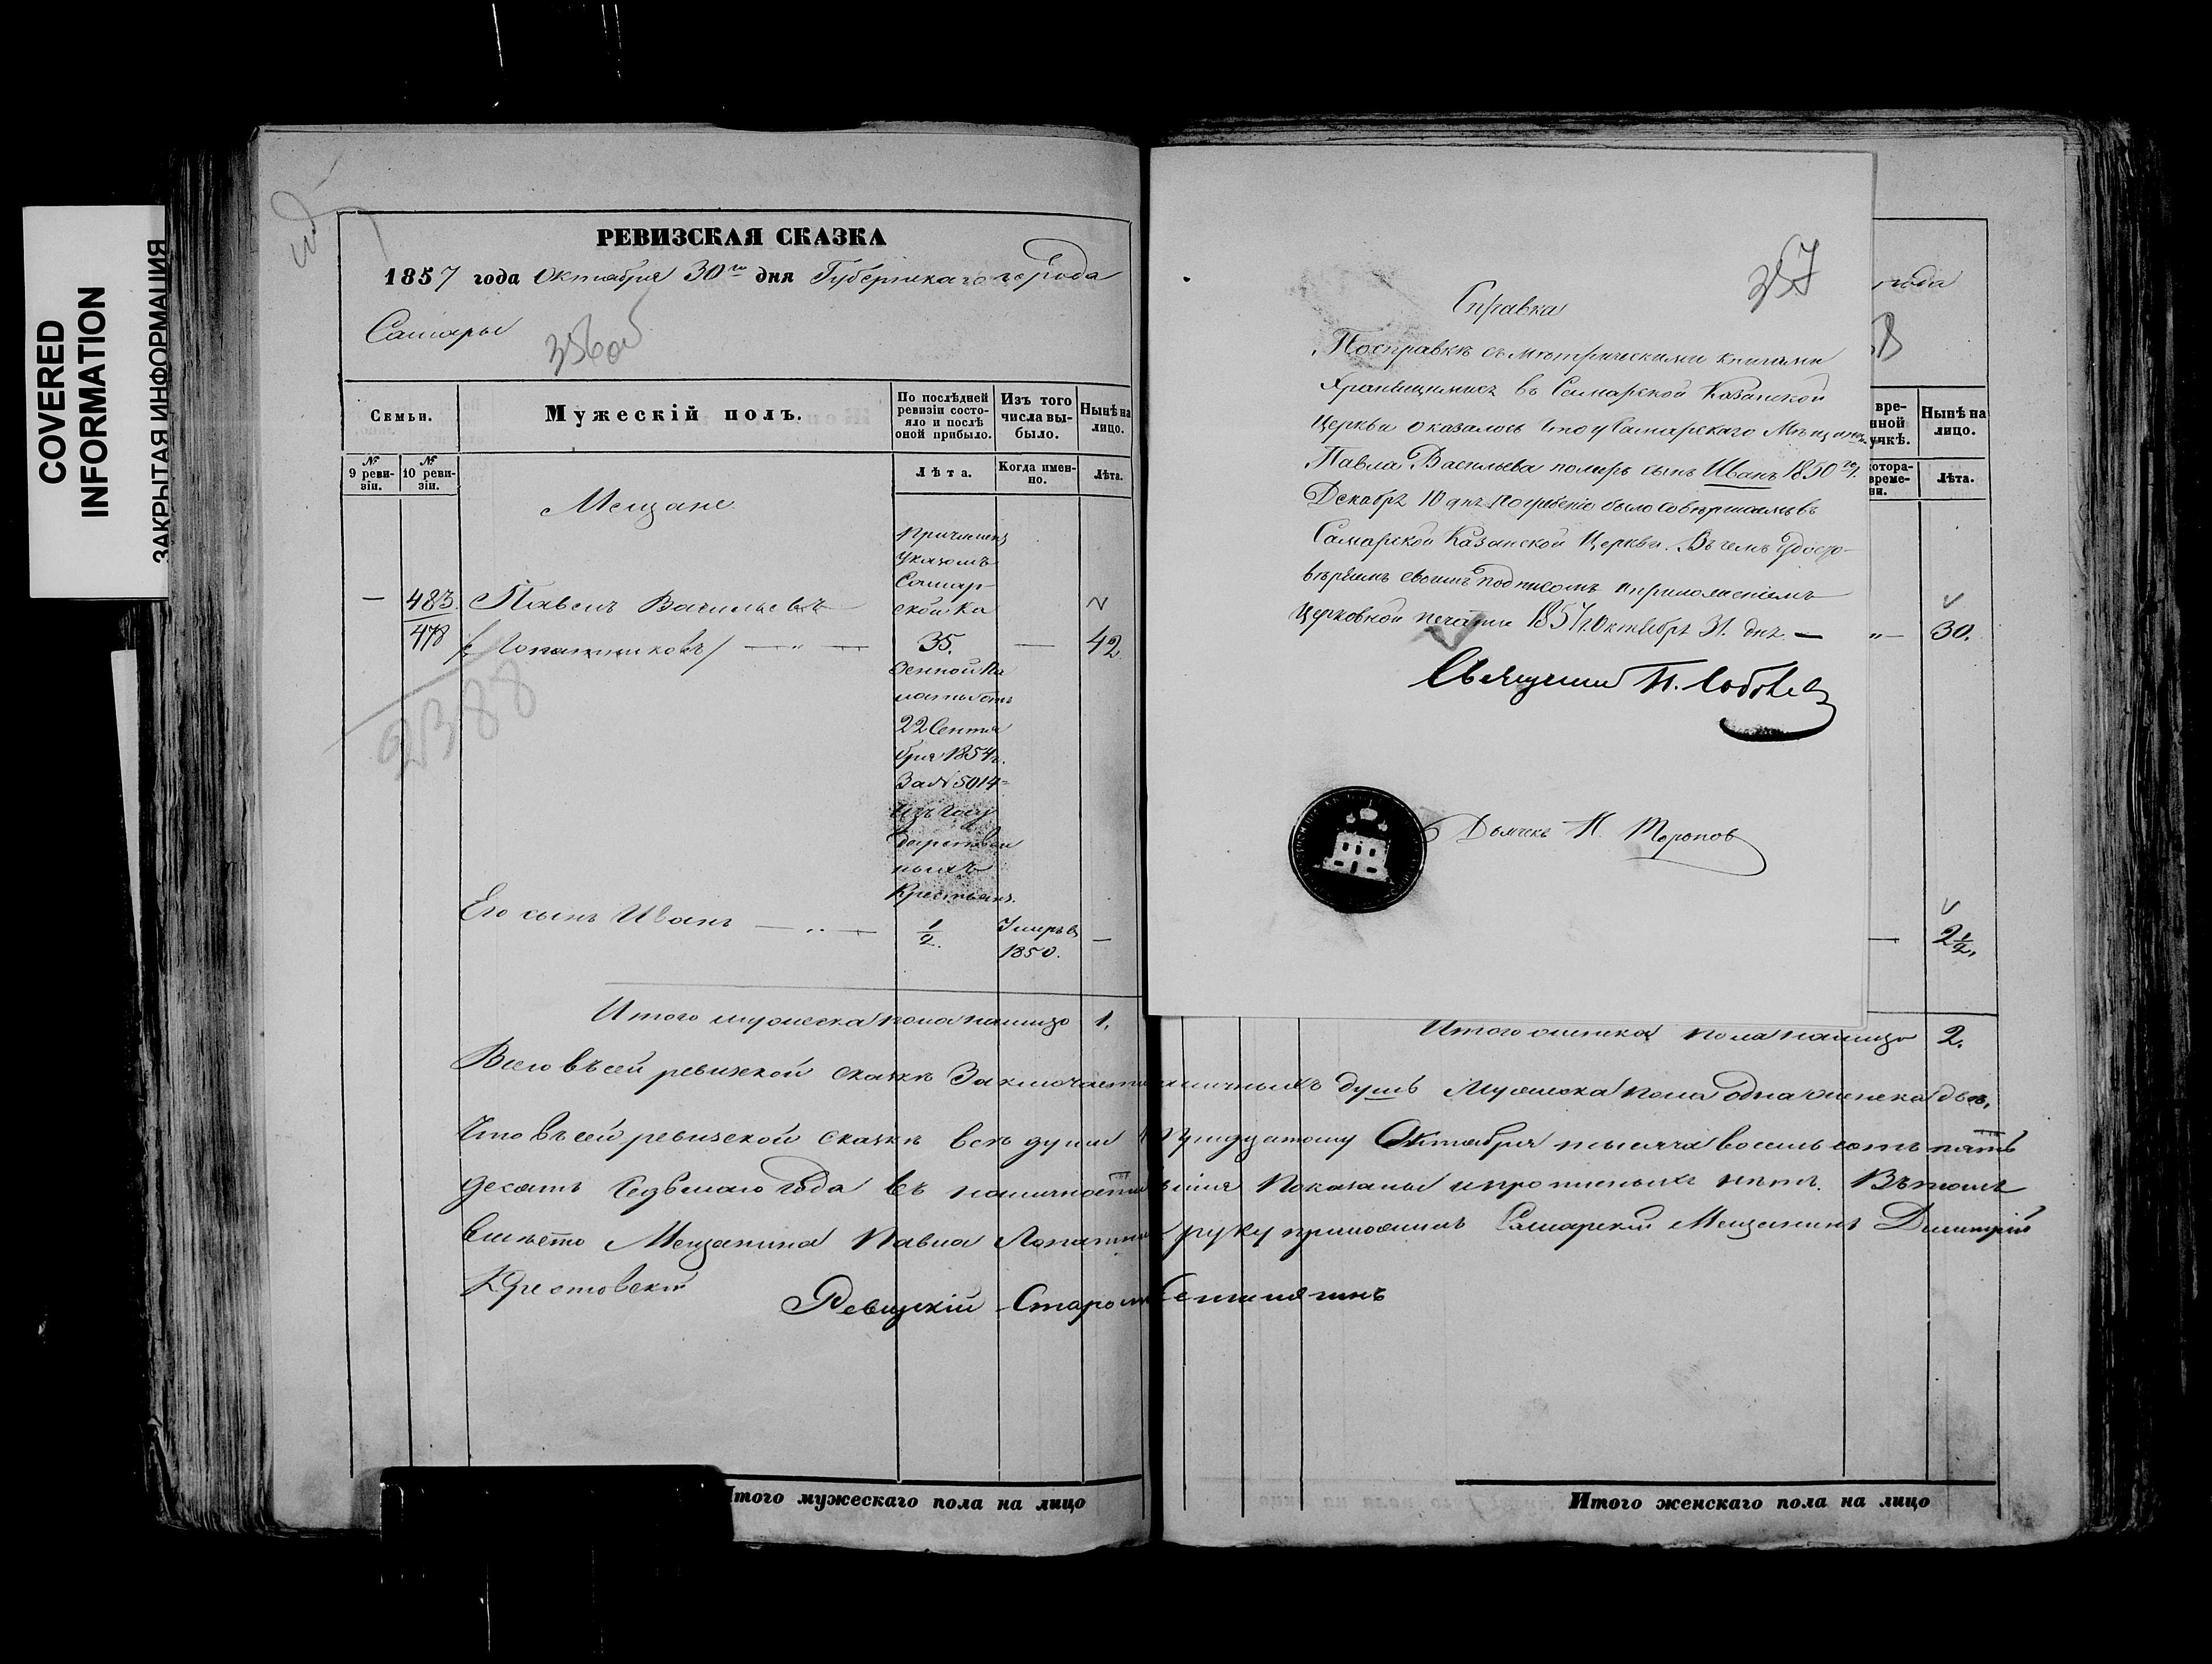 COVERED
INFORMATION
ЗАКРЫТАЯ ИНФОРМАЦИЯ
РЕВИЗСКАЯ СКАЗКА
1857 года Октября 30го дня Губернскаго города
Самары
356об
Семьи.
Мужескій полъ.
По послѣдней
ревизіи состо-
яло и послѣ
оной прибыло.
Изъ того
числа вы-
было.
Нынѣ на
лицо.
№
9 реви-
зіи.
№
10 реви-
зіи.
Лѣта.
Когда имен-
но.
Лѣта.
Мещане
Причисленъ
Указомъ
Самар-
ской Ка
— 483. Павелъ Васильевъ
478 /Лопатниковъ/ — „ — 35. — 42.
зенной Па
латы отъ
22 Сентя
бря 1854г.
За № 5014
Изъ Госу
дарствен
ныхъ
Крестьянъ.
2388
Его сынъ Иванъ — „ — 1/2. Умеръ в —
1850.
Итого мужеска пола налицо 1.
Справка
357
По справкѣ съ метрическими книгами
хранящимися въ Самарской Казанской
Церкви оказалось что у Самарскаго Мѣщанина
Павла Васильева померъ сынъ Иванъ 1850го г.
Декабря 10 дня погребеніе было совершаемъ въ
Самарской Казанской Церкви. Въ чемъ удосто-
вѣряемъ своимъ подписомъ и приложеніемъ
Церковной печати 1857 г. Октября 31. дня. —
Священник П.
Дьячекъ Н. Торопов
года
вре-
нной
учкѣ.
Нынѣ на
лицо.
котора-
време-
ни.
Лѣта.
„ — 30.
— 2 1/2.
Итого женска пола налицо 2.
Всего въ сей ревизской сказкѣ Заключается наличныхъ душъ Мужеска пола одна женска двѣ.
Что въ сей ревизской сказкѣ всѣ души к тридцатому Октября тысяча восемь сотъ пять
десятъ Седьмаго года въ наличности Показаны и прописныхъ нѣтъ. Въ томъ
вмѣсто Мещанина Павла руку приложилъ Самарскій Мещанинъ Дмитрій
Крестовскій
Ревизскій Староста
Итого мужескаго пола на лицо
Итого женскаго пола на лицо